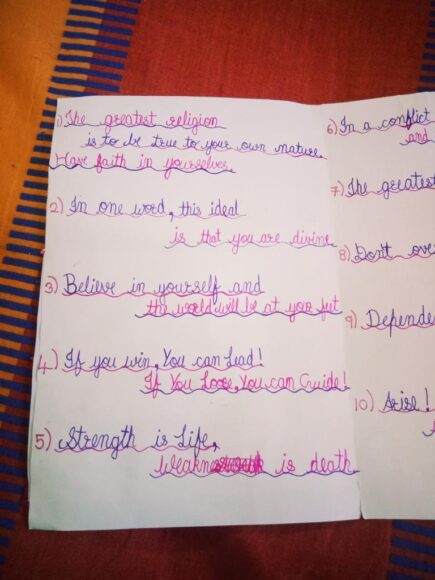 1) The greatest religion
is to be true to your own nature.
Have faith in yourselves.
2) In one word, this ideal
is that you are divine
3) Believe in yourself and
the world will be at your feet
4) If you win, You can Lead!
If You Loose, You can Guide!
5) Strength is Life,
is death
6) In a conflict
and
7) The greatest
8) Dont over
9) Depende
10) Arise!